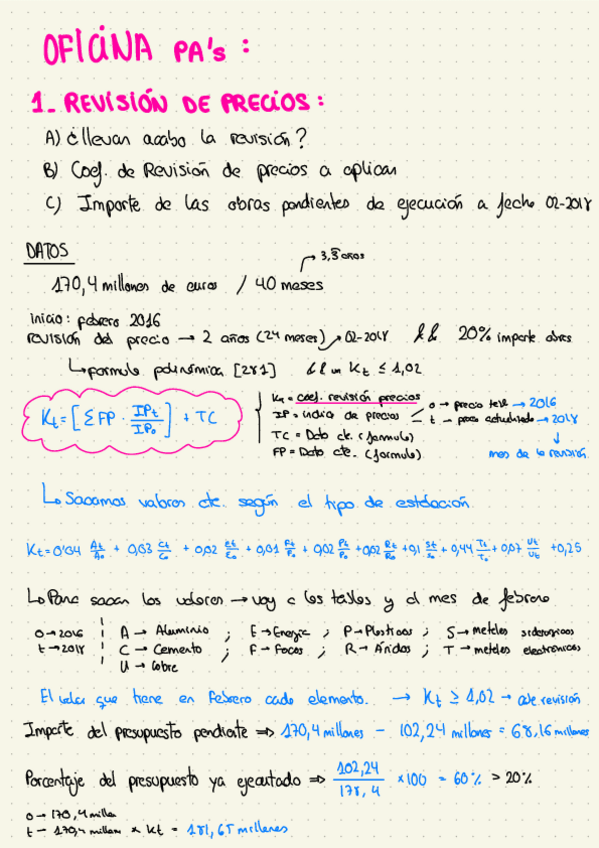 OFICINA PA's :
1_ REVISIÓN DE PRECIOS :
A) ¿llevan acabo la revisión?
B) Coef. de Revisión de precios a aplicar
C) Importe de las obras pendientes de ejecución a fecha 02-2018
DATOS
3,3 años
170,4 millones de euros / 40 meses
inicio: febrero 2016
revisión del precio → 2 años (24 meses) → 02-2018 && 20% importe obras
↳ formula polinómica [281] Kt ≤ 1,02
Kt = [ΣFP · IPt/IP0] + TC
Kt = coef. revisión precios
IP = indice de precios
0 → precio → 2016
t → precio actualizado → 2018
TC = Dato cte. (formula)
FP = Dato cte. (formula)
mes de la revisión
↳ Sacamos valores cte. según el tipo de estación.
Kt = 0'04 At/A0 + 0,03 Ct/C0 + 0,02 Et/E0 + 0,01 Ft/F0 + 0,02 Pt/P0 + 0,02 Rt/R0 + 0,1 St/S0 + 0,44 Tt/T0 + 0,07 Ut/U0 + 0,25
↳ Para sacar los valores → voy a las tablas y al mes de febrero
0 → 2016 A → Aluminio ; E → Energía ; P → Plásticos ; S → metales siderúrgicos
t → 2018 C → Cemento ; F → Focos ; R → Áridos ; T → metales electrónicos
U → Cobre
El valor que tiene en febrero cada elemento. → Kt ≥ 1,02 → cabe revisión
Importe del presupuesto pendiente ⇒ 170,4 millones - 102,24 millones = 68,16 millones
Porcentaje del presupuesto ya ejecutado ⇒ 102,24/178,4 × 100 = 60% > 20%
0 → 170,4 millon
t → 170,4 millon * Kt = 181,65 millones